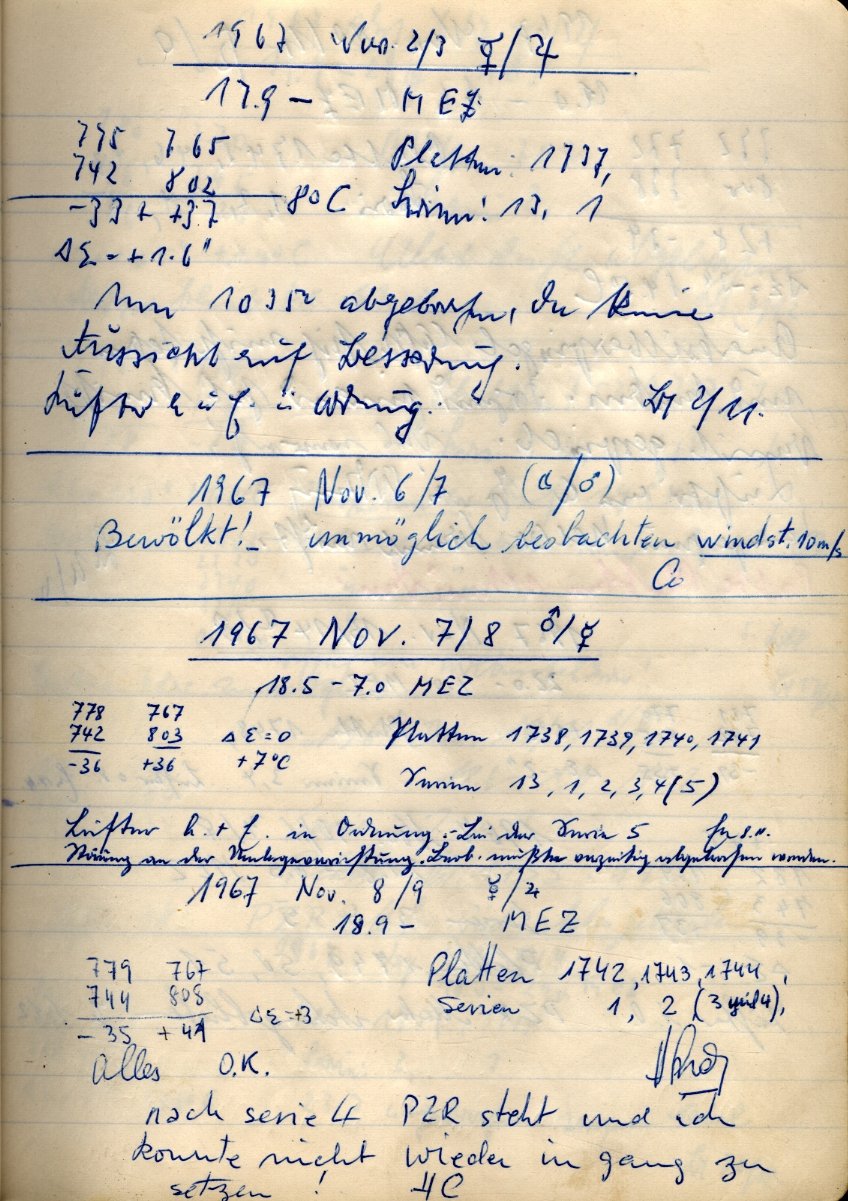 1967 Nov. 2/3 ☿/♃
17.9 — MEZ
775 765 Platten: 1737,
742 802 8°C Serien: 13, 1
-33 + +37
Δε = +1.6"
Um 1035 abgebrochen, da keine
Aussicht auf Besserung.
Lüfter e u. f. in Ordnung. 2/11.
1967 Nov. 6/7 (☾/♂)
Bewölkt! – unmöglich beobachten windst. 10 m/s
Co
1967 Nov. 7/8 ♂/☿
18.5 – 7.0 MEZ
778 767
742 803 Δε = 0 Platten 1738, 1739, 1740, 1741
-36 +36 +7°C
Serien 13, 1, 2, 3, 4 (5)
Lüfter h. + f. in Ordnung. – Bei der Serie 5
Störung an der Umlegevorrichtung. Beob. mußte vorzeitig abgebrochen werden.
1967 Nov. 8/9 ☿/♃
18.9 – MEZ
779 767 Platten 1742, 1743, 1744,
744 808 Serien 1, 2, (3 und 4),
-35 +41 Δε = +3
alles O.K.
nach serie 4 PZR steht und ich
konnte nicht wieder in gang zu
setzen! HC